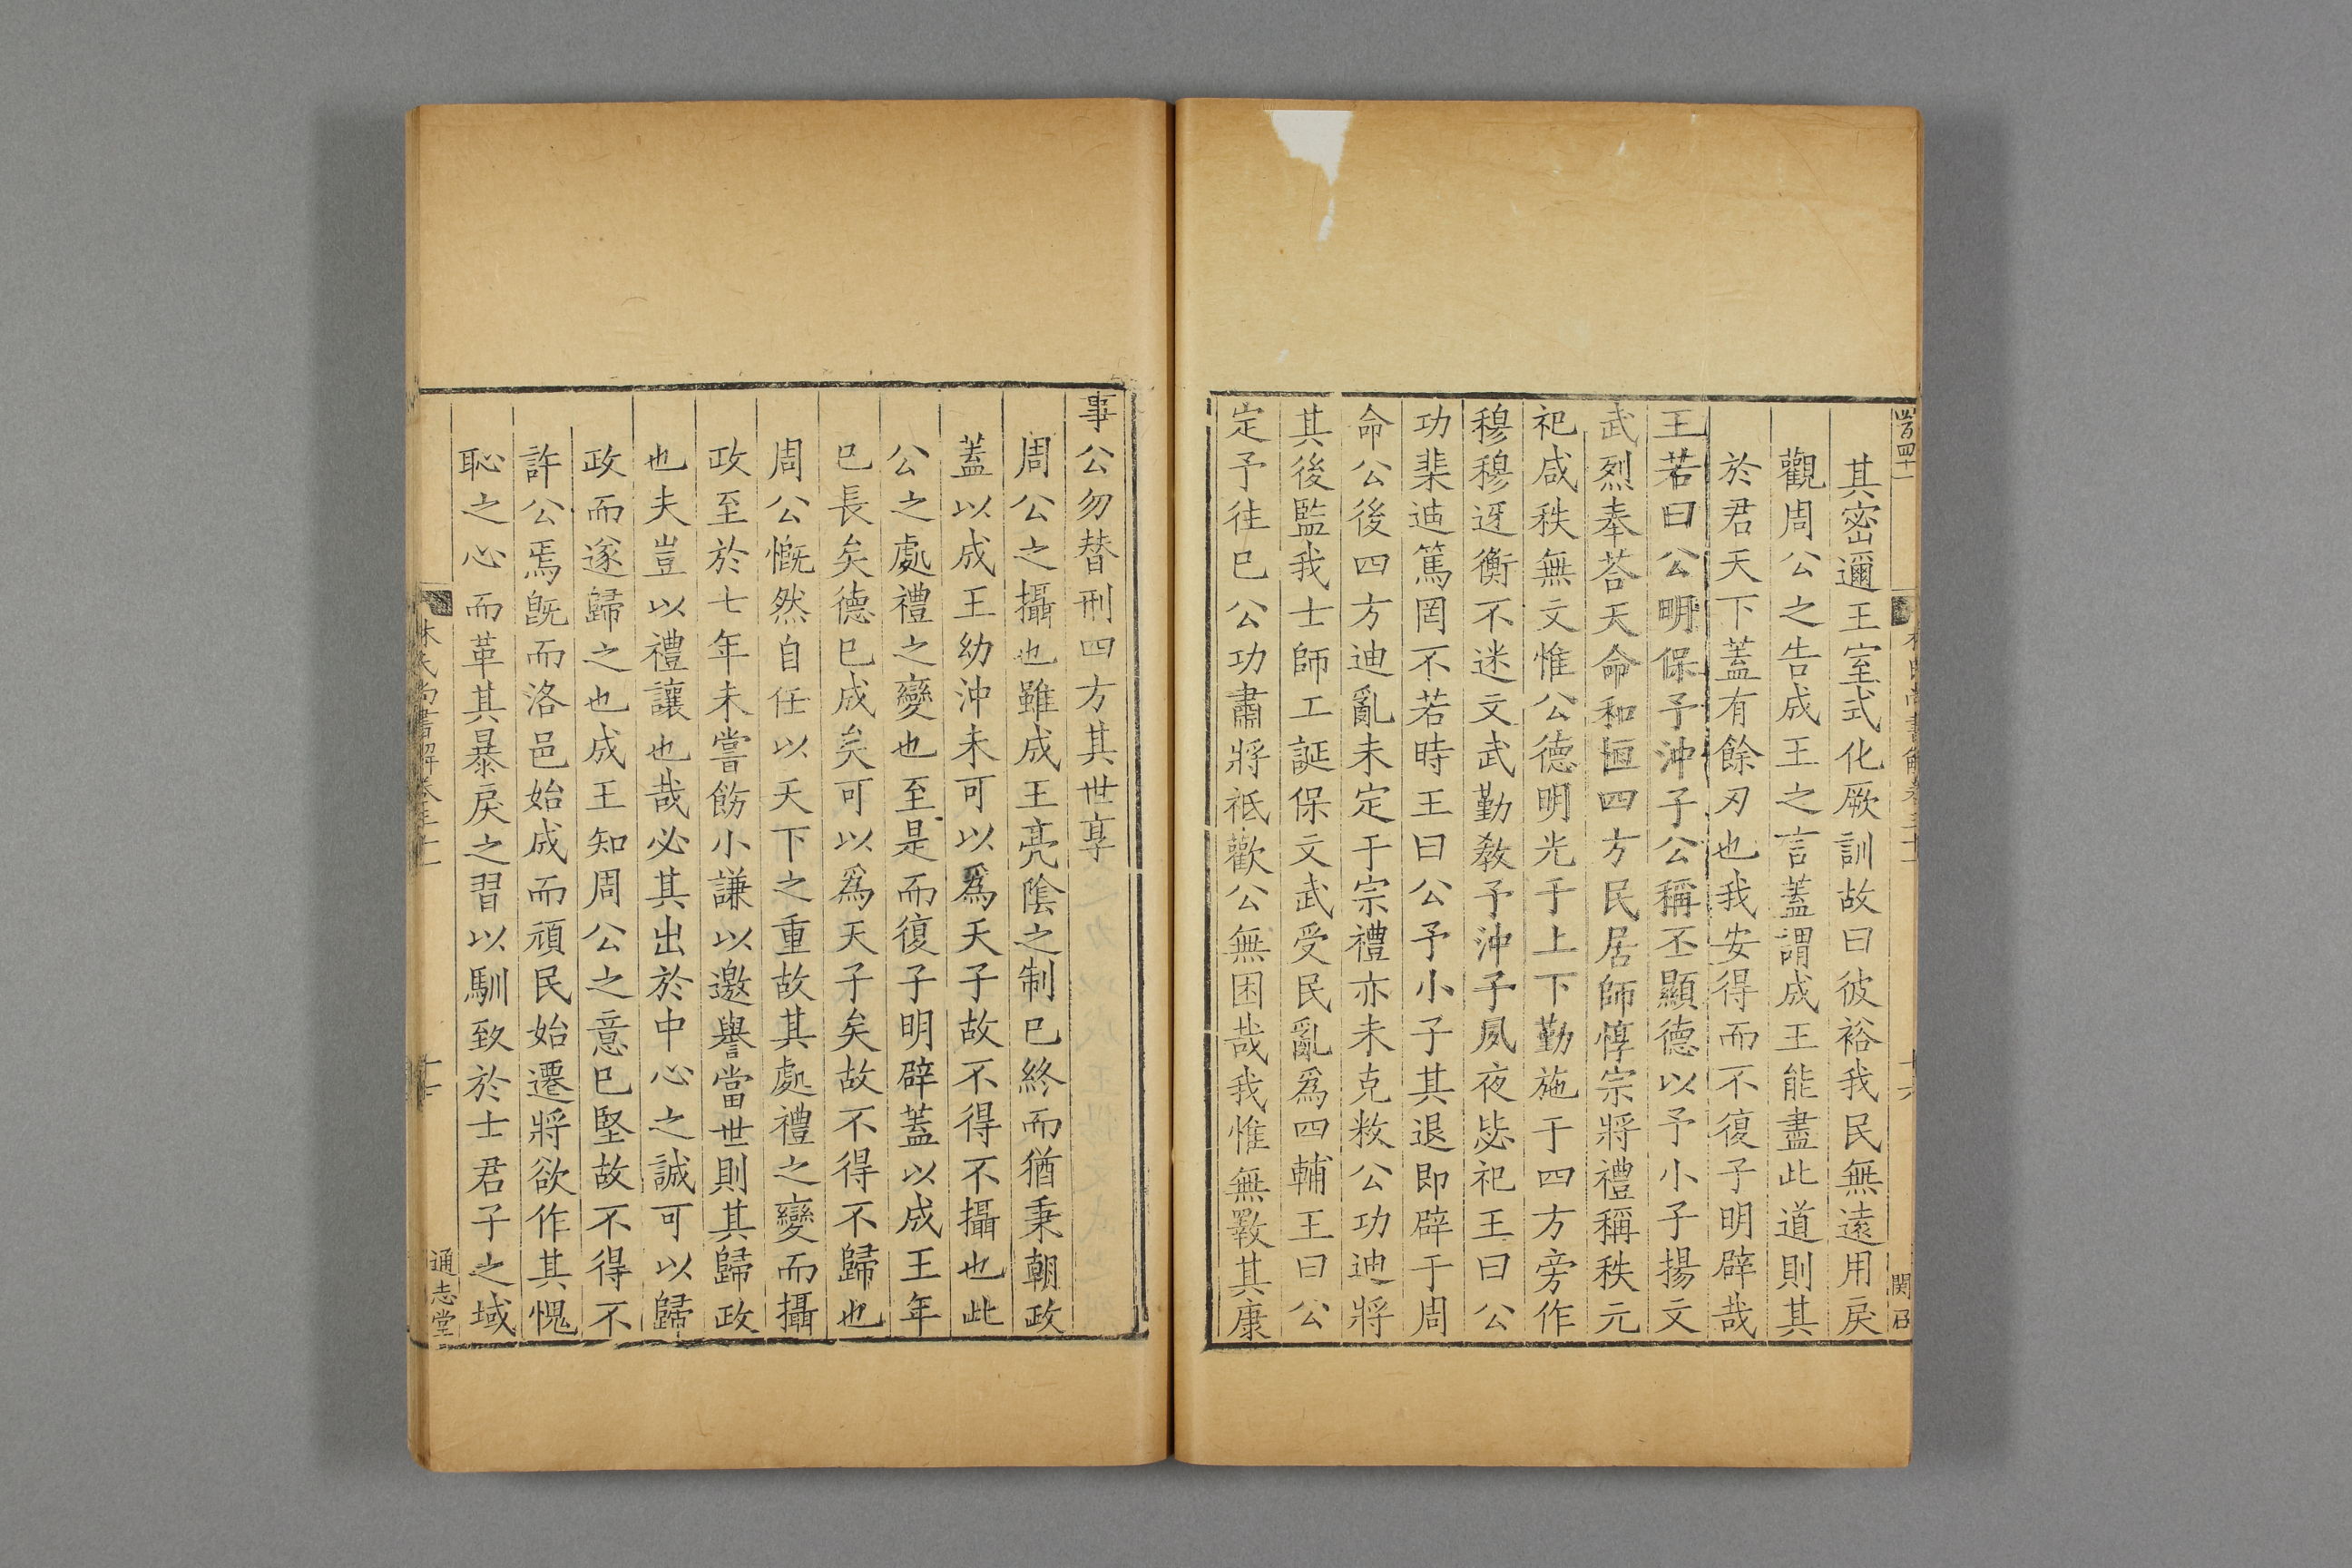 其密邇王室式化厥訓故曰彼裕我民無遠用戾
觀周公之告成王之言蓋謂成王能盡此道則其
於君天下蓋有餘刃也我安得而不復子明辟哉
王若曰公明保予沖子公稱丕顯德以予小子揚文
武烈奉荅天命和恒四方民居師惇宗將禮稱秩元
祀咸秩無文惟公德明光于上下勤施于四方旁作
穆穆迓衡不迷文武勤敎予沖子夙夜毖祀王曰公
功棐迪篤罔不若時王曰公予小子其退即辟于周
命公後四方迪亂未定于宗禮亦未克敉公功迪將
其後監我士師工誕保文武受民亂爲四輔王曰公
定予往已公功肅將祗歡公無困哉我惟無斁其康
事公勿替刑四方其世享
周公之攝也雖成王亮陰之制已終而猶秉朝政
蓋以成王幼沖未可以爲天子故不得不攝也此
公之處禮之變也至是而復子明辟蓋以成王年
已長矣德已成矣可以爲天子矣故不得不歸也
周公慨然自任以天下之重故其處禮之變而攝
政至於七年未嘗飭小謙以邀譽當世則其歸政
也夫豈以禮讓也哉必其出於中心之誠可以歸
政而遂歸之也成王知周公之意已堅故不得不
許公焉旣而洛邑始成而頑民始遷將欲作其愧
恥之心而革其暴戾之習以馴致於士君子之域
林氏尚書解卷三十二
通志堂